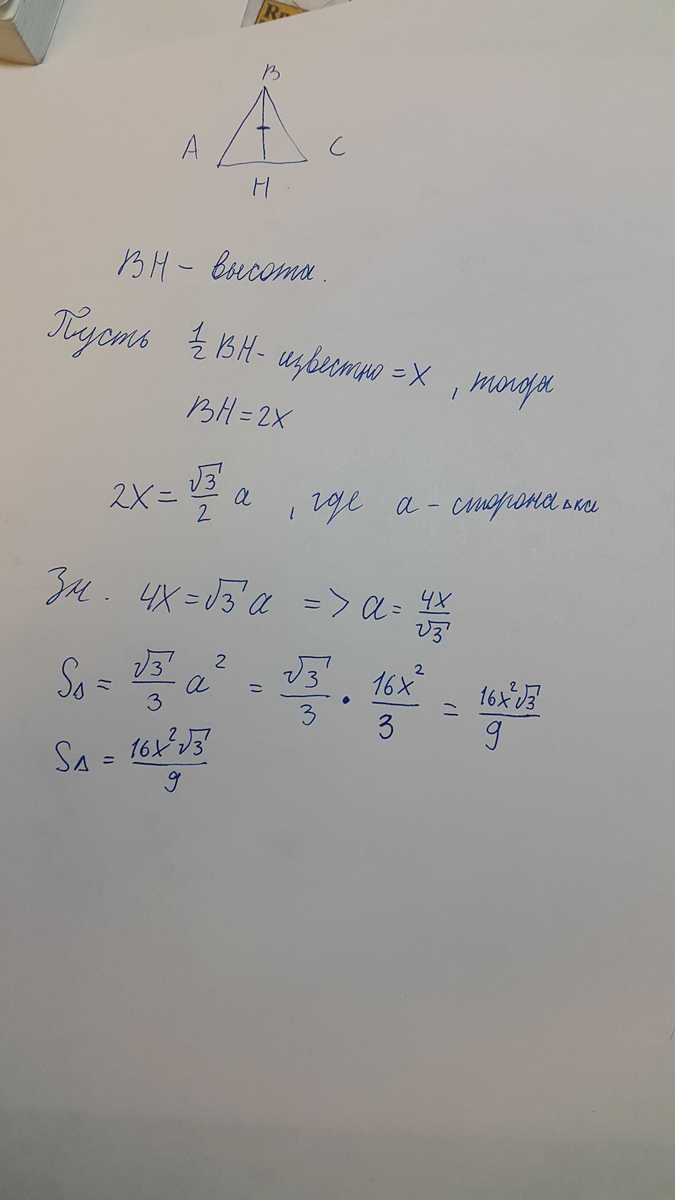 В
А
С
Н
ВН – высота.
Пусть 1/2 ВН - известно = x , тогда
ВН = 2x
2x = √3/2 a , где a – сторона Δ-ка
Зн. 4x = √3 a => a = 4x/√3
S△ = √3/3 a² = √3/3 · 16x²/3 = 16x²√3/9
S△ = 16x²√3/9